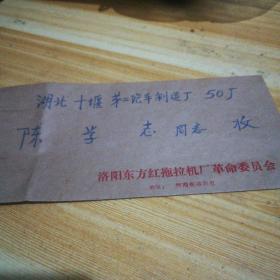 湖北十堰第二汽车制造厂50厂
陈学志同志收
洛阳东方红拖拉机厂革命委员会